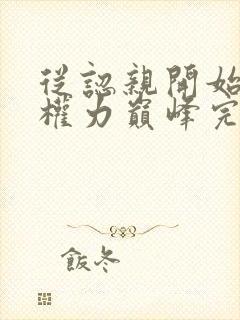 從認親開始
權力巔峰完
飯冬